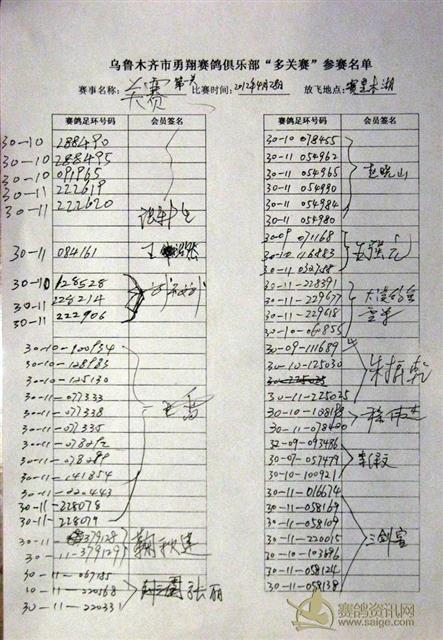 乌鲁木齐市勇翔赛鸽俱乐部“多关赛”参赛名单
赛事名称: 关赛 第一关 比赛时间: 2012年4月28日 放飞地点:
赛鸽足环号码 会员签名
30-10 288490
30-10 288495
30-10 091965
30-11 222619
30-11 222620
30-11 084161 王
30-10 128528
30-11 228214
30-11 222906
30-10-100934
30-10-128983
30-10-125130
30-11-077333
30-11-077338
30-11-077335
30-11-078212
30-11-078289
30-11-141854
30-11-020443
30-11-228078
30-11-228079
王雷
30-11 379128
30-11-379129
鞠秋连
30-11-067185
30-11-220168
30-11-22033
张丽
赛鸽足环号码 会员签名
30-10 078455
30-11 054962
30-11 054965
30-11 054990
30-11 054984
30-11 054980
赵晓山
30-09 071168
30-10 116883
30-11 032788
30-11-228391
30-11-229677
30-11-229618
30-10-060855
30-09-111689
30-10-125030
30-11-225025
30-10-108198
30-11-078600
32-09-093486
30-07-057479
30-10-100921
30-11-016674
30-11-058169
30-11-058109
30-11-220015
30-10-103696
30-11-058124
30-11-058138
三剑客
赛鸽资讯网
www.saige.com